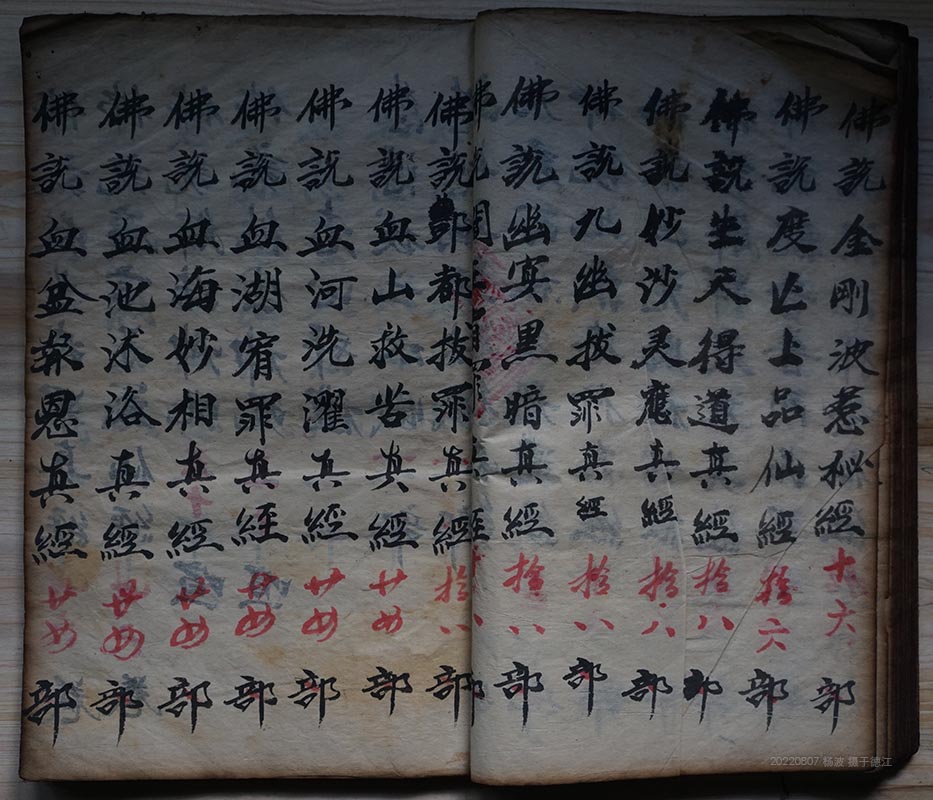 佛説全剛波惹秘經十六部
佛説度亡上品仙經拾六部
佛説生天得道真經拾八部
佛説妙沙灵應真經拾八部
佛説九幽拔罪真經拾八部
佛説幽冥黑暗真經拾八部
佛説酆都拔罪真經拾八部
佛説血山救苦真經廿四部
佛説血河洗濯真經廿四部
佛説血湖宥罪真經廿四部
佛説血海妙相真經廿四部
佛説血池沐洛真經廿四部
佛説血盆報恩真經廿四部
20220807 杨波 摄于德江